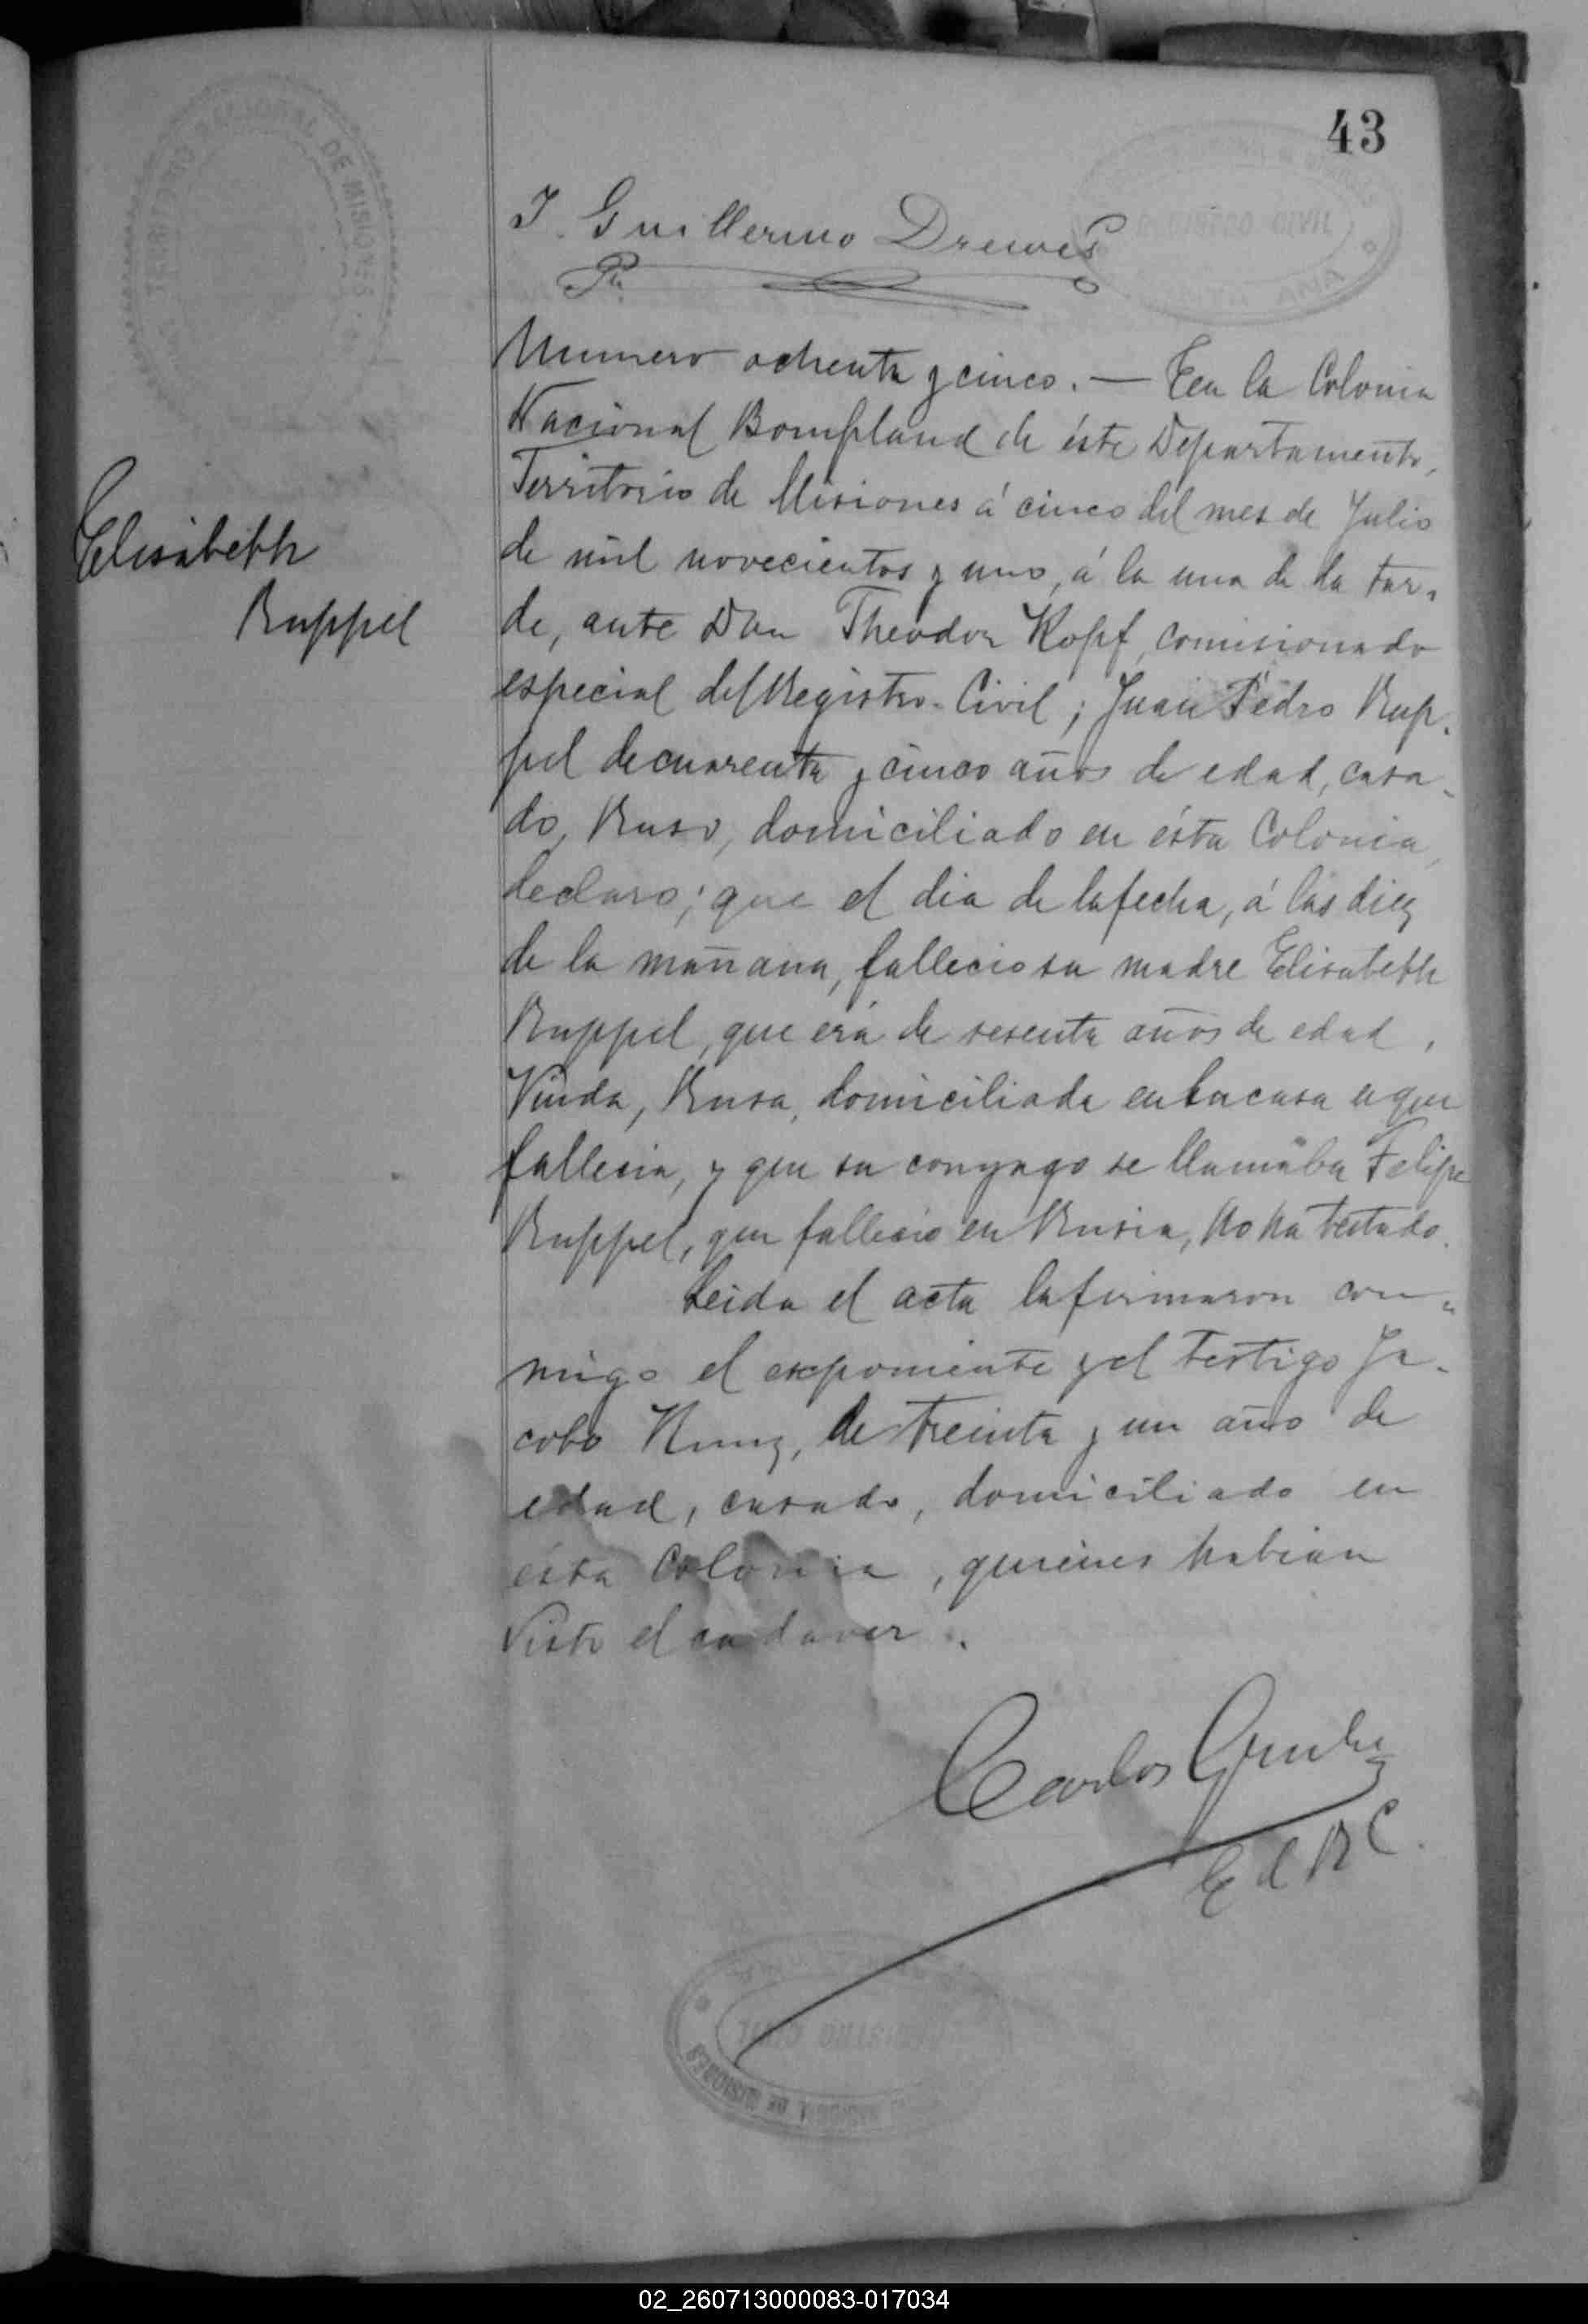 43
J. Guillermo Drewes
Numero ochenta y cinco. — En la Colonia
Nacional Bompland de éste Departamento,
Territorio de Misiones á cinco del mes de Julio
Elisabeth
Ruppel
de mil novecientos y uno, á la una de la tar-
de, ante Don Theodor Kopf, comisionado
especial del Registro Civil; Juan Pedro Rup-
pel de cuarenta y cinco años de edad, casa-
do, Ruso, domiciliado en ésta Colonia,
declaro; que el dia de la fecha, á las diez
de la mañana, fallecio su madre Elisabeth
Ruppel, que era de sesenta años de edad,
Viuda, Rusa, domiciliada en la casa en que
fallecia, y que su conyugo se llamaba Felipe
Ruppel, que fallecio en Rusia, No ha testado.
Leida el acta la firmaron con-
migo el exponiente y el testigo Ja-
cobo Kunz, de treinta y un año de
edad, casado, domiciliado en
ésta Colonia, quienes habian
Visto el cadaver.
Carlos
E d R C.
TERRITORIO NACIONAL DE MISIONES
REGISTRO CIVIL
SANTA ANA
REGISTRO CIVIL
NACIONAL DE MISIONES
02_260713000083-017034